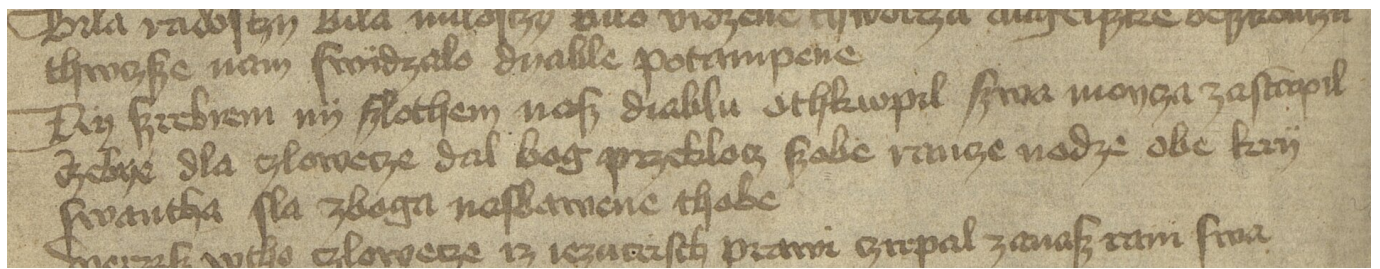 Bila radosczy bila miloscz bilo vidzene thworcza angelszke beszkoncza
thwczsze nam swidzalo dyable potampene
Ny szrebrem ny szlothem nasz diablu othkwpil szwa moncza zastampil
czebye dla czlowecze dal bog przeklocz szobe rancze nodze obe kry
swantha sla zboga nasbawene thobe
werzysz wtho czlowecze iz iezucrsth prawi czirpal zanasz rani swa